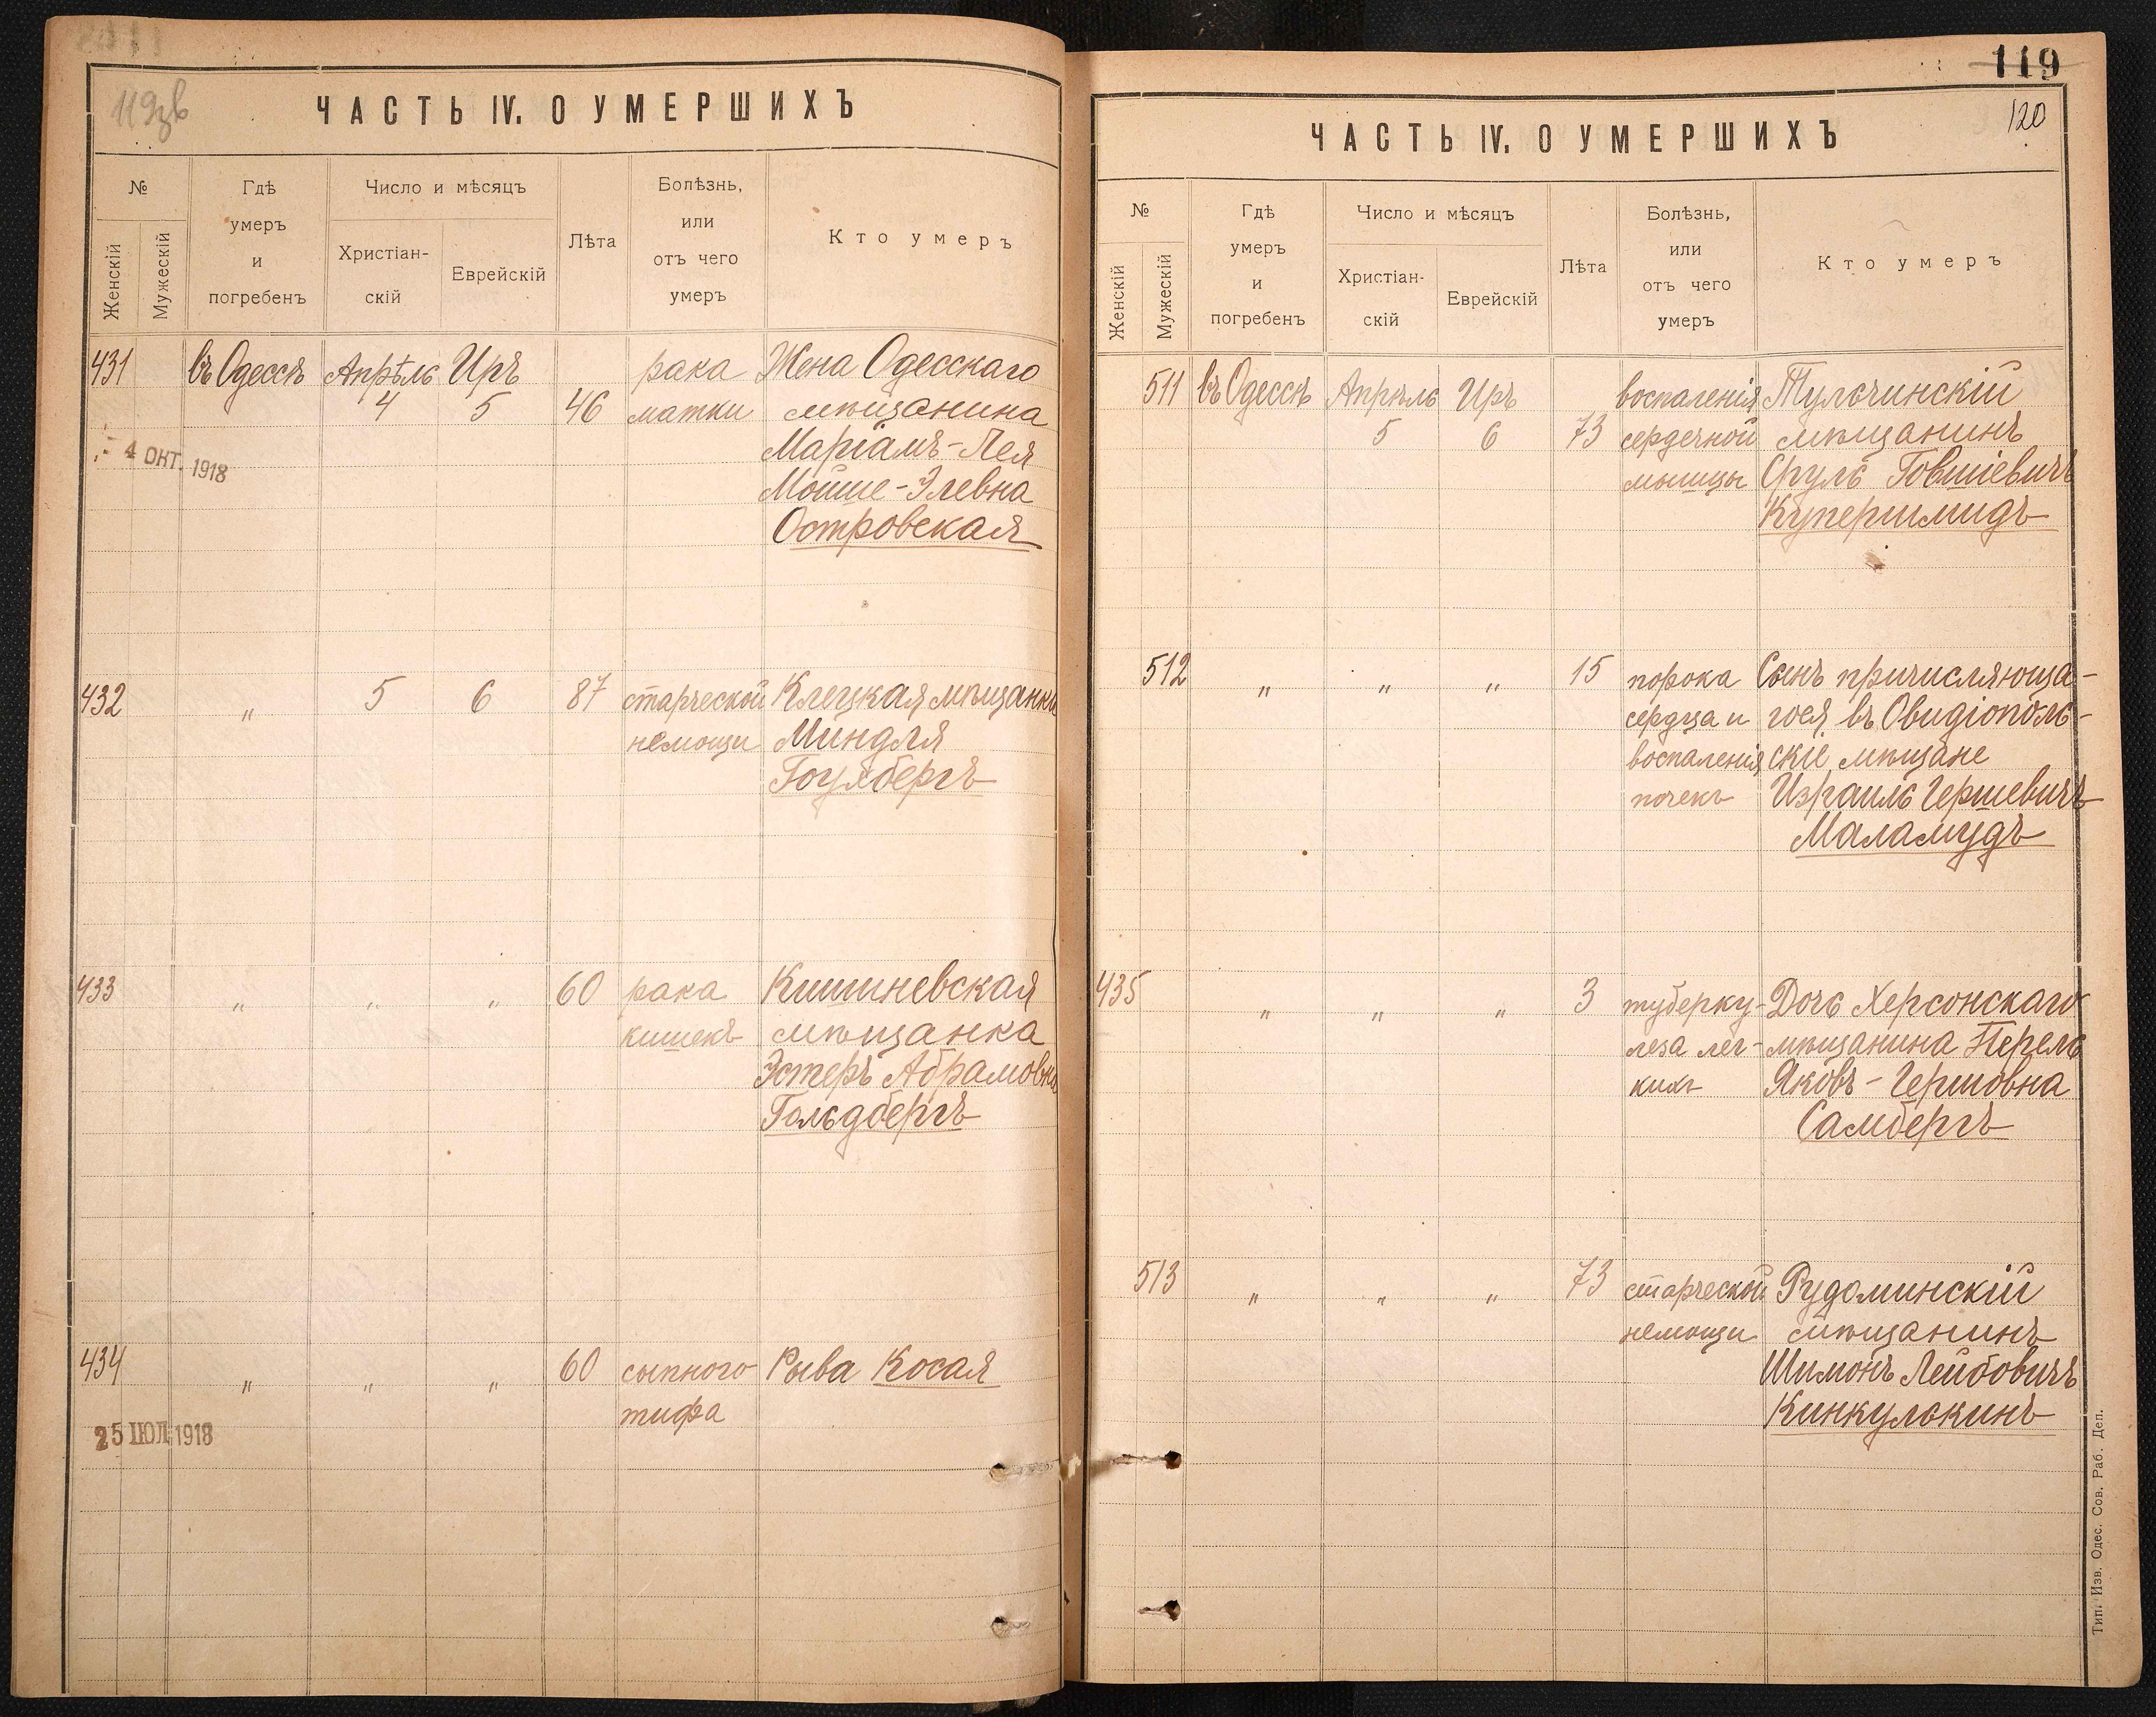 119зв
ЧАСТЬ IV. О УМЕРШИХЪ
№
Женскій
Мужескій
Гдѣ
умеръ
и
погребенъ
Число и мѣсяцъ
Христіан-
скій
Еврейскій
Лѣта
Болѣзнь,
или
отъ чего
умеръ
Кто умеръ
431 въ Одессѣ Апрѣль Иръ рака Жена Одесскаго
4 5 46 матки мѣщанина
4 ОКТ. 1918
Маріамъ-Лея
Мойше-Элевна
Островская
432 " 5 6 87 старческой Клецкая мѣщанка
немощи Миндля
433 " " " 60 рака Кишиневская
кишекъ мѣщанка
Эстеръ Абрамовна
Гольдбергъ
434 " " " 60 сыпного Рыва Косая
тифа
25 ІЮЛ 1918
119
120
ЧАСТЬ IV. О УМЕРШИХЪ
№
Женскій
Мужескій
Гдѣ
умеръ
и
погребенъ
Число и мѣсяцъ
Христіан-
скій
Еврейскій
Лѣта
Болѣзнь,
или
отъ чего
умеръ
Кто умеръ
511 въ Одессѣ Апрѣль Иръ воспаленія Тульчинскій
5 6 73 сердечной мѣщанинъ
мышцы Сруль Говшіевичъ
Купершмидъ
512 " " " 15 порока Сынъ причисляюща-
сердца и гося въ Овидіополь-
воспаленія скіе мѣщане
почекъ Израиль Гершевичъ
Маламудъ
435 " " " 3 туберку- Дочь Херсонскаго
леза лег- мѣщанина Перель
кихъ Яковъ-Гершовна
Самбергъ
513 " " " 73 старческой Рудоминскій
немощи мѣщанинъ
Шимонъ Лейбовичъ
Кинкулькинъ
Тип. Изв. Одес. Сов. Раб. Деп.